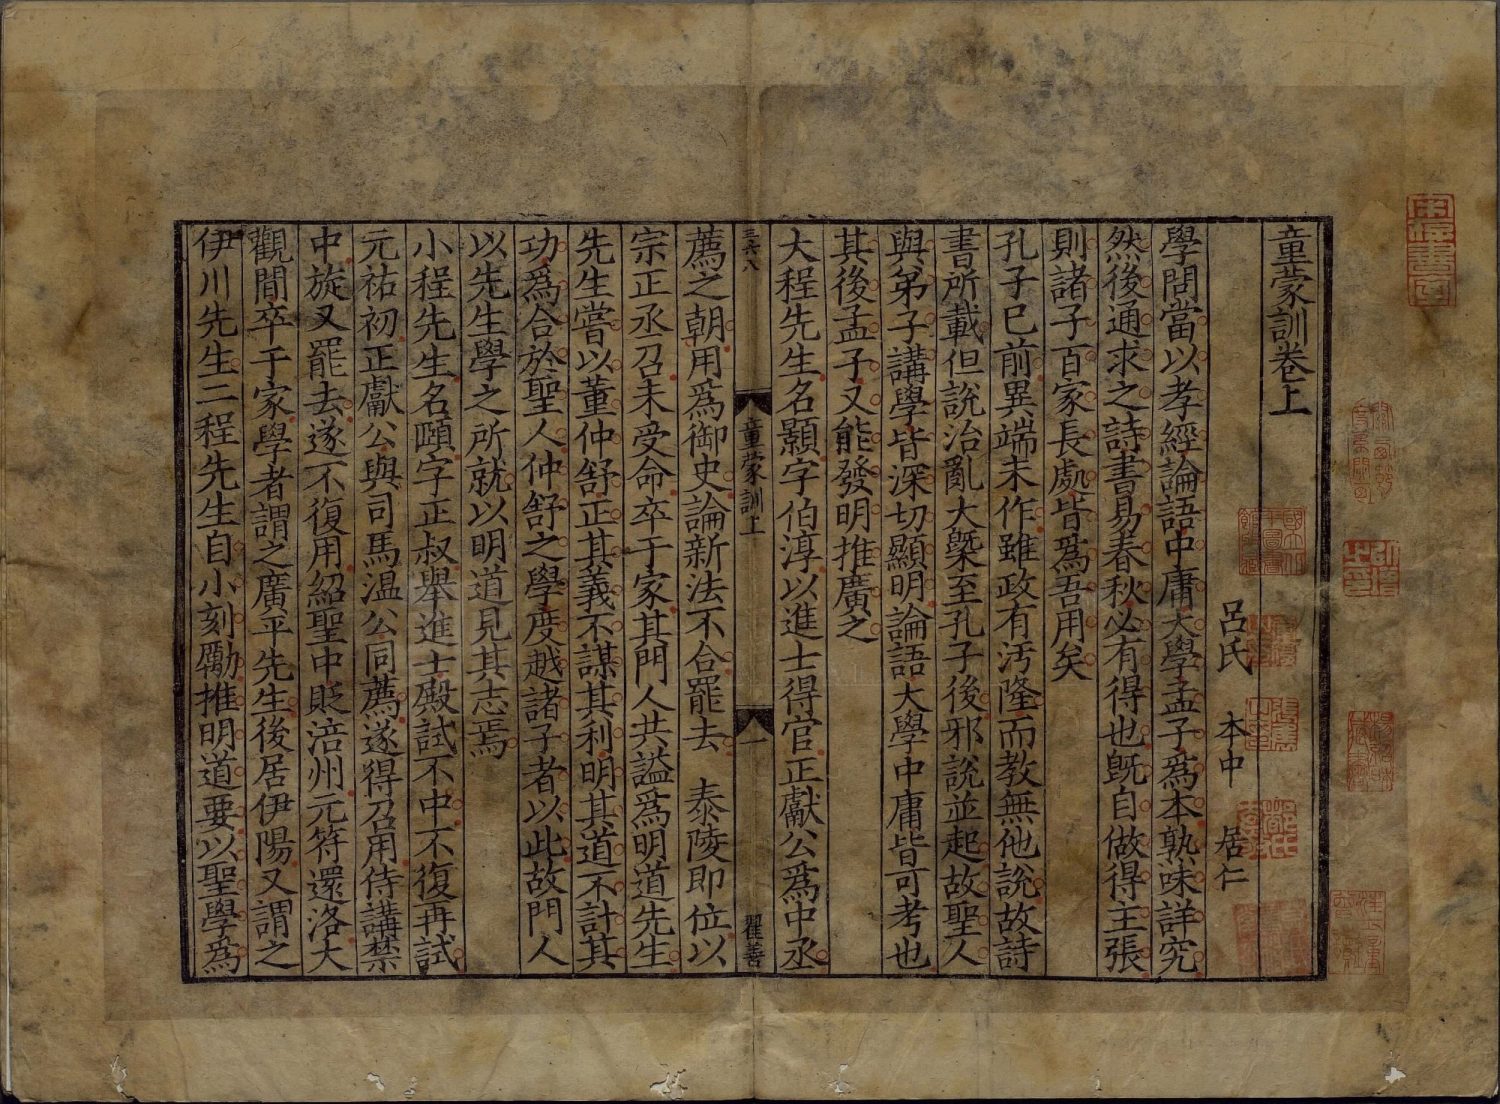 童蒙訓卷上
呂氏 本中 居仁
學問當以孝經論語中庸大學孟子爲本熟味詳究
然後通求之詩書易春秋必有得也旣自做得主張
則諸子百家長處皆爲吾用矣
孔子已前異端未作雖政有汚隆而教無他說故詩
書所載但說治亂大槩至孔子後邪說並起故聖人
與弟子講學皆深切顯明論語大學中庸皆可考也
其後孟子又能發明推廣之
大程先生名顥字伯淳以進士得官正獻公爲中丞
三六八
童蒙訓上
一
翟善
薦之朝用爲御史論新法不合罷去 泰陵即位以
宗正丞召未受命卒于家其門人共謚爲明道先生
先生嘗以董仲舒正其義不謀其利明其道不計其
功爲合於聖人仲舒之學度越諸子者以此故門人
以先生學之所就以明道見其志焉
小程先生名頤字正叔舉進士殿試不中不復再試
元祐初正獻公與司馬溫公同薦遂得召用侍講禁
中旋又罷去遂不復用紹聖中貶涪州元符還洛大
觀間卒于家學者謂之廣平先生後居伊陽又謂之
伊川先生二程先生自小刻勵推明道要以聖學爲